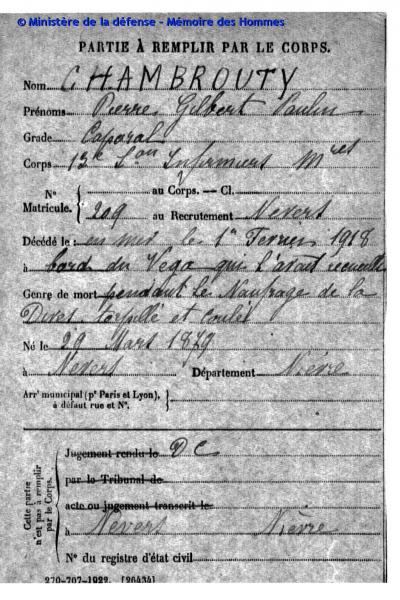 © Ministère de la défense - Mémoire des Hommes
PARTIE À REMPLIR PAR LE CORPS.
Nom CHAMBROUTY
Prénoms Pierre Gilbert Paulin
Grade Caporal
Corps 13e Son Infirmiers Mres
N° au Corps. — Cl.
Matricule. 209 au Recrutement Nevers
Décédé le : en mer le 1er Fevrier 1918
à bord du Véga qui l'avait recueilli
Genre de mort pendant le Naufrage de la
Dives torpillé et coulée
Né le 29 Mars 1879
à Nevers Département Nièvre
Arrt municipal (pr Paris et Lyon),
à défaut rue et N°.
Cette partie
n'est pas à remplir
par le Corps.
Jugement rendu le D C
par le Tribunal de
acte ou jugement transcrit le
à Nevers Nièvre
N° du registre d'état civil
270-707-1922. [26434]